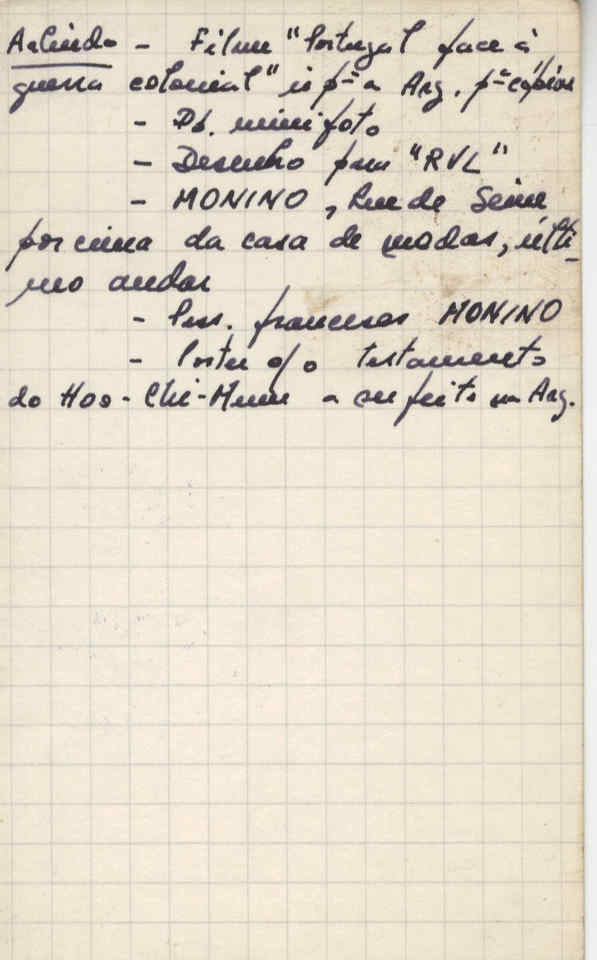 Arlindo - Filme "Portugal face à
guerra colonial" ir pª a Arg. pª cópias
- Ob. mini foto
- Desenho para "RVL"
- MONINO, Rue de Seine
por cima da casa de modas, últi-
mo andar
- franceses MONINO
- Poster c/o testamento
do Hoo-Chi-Minn a ser feito na Arg.